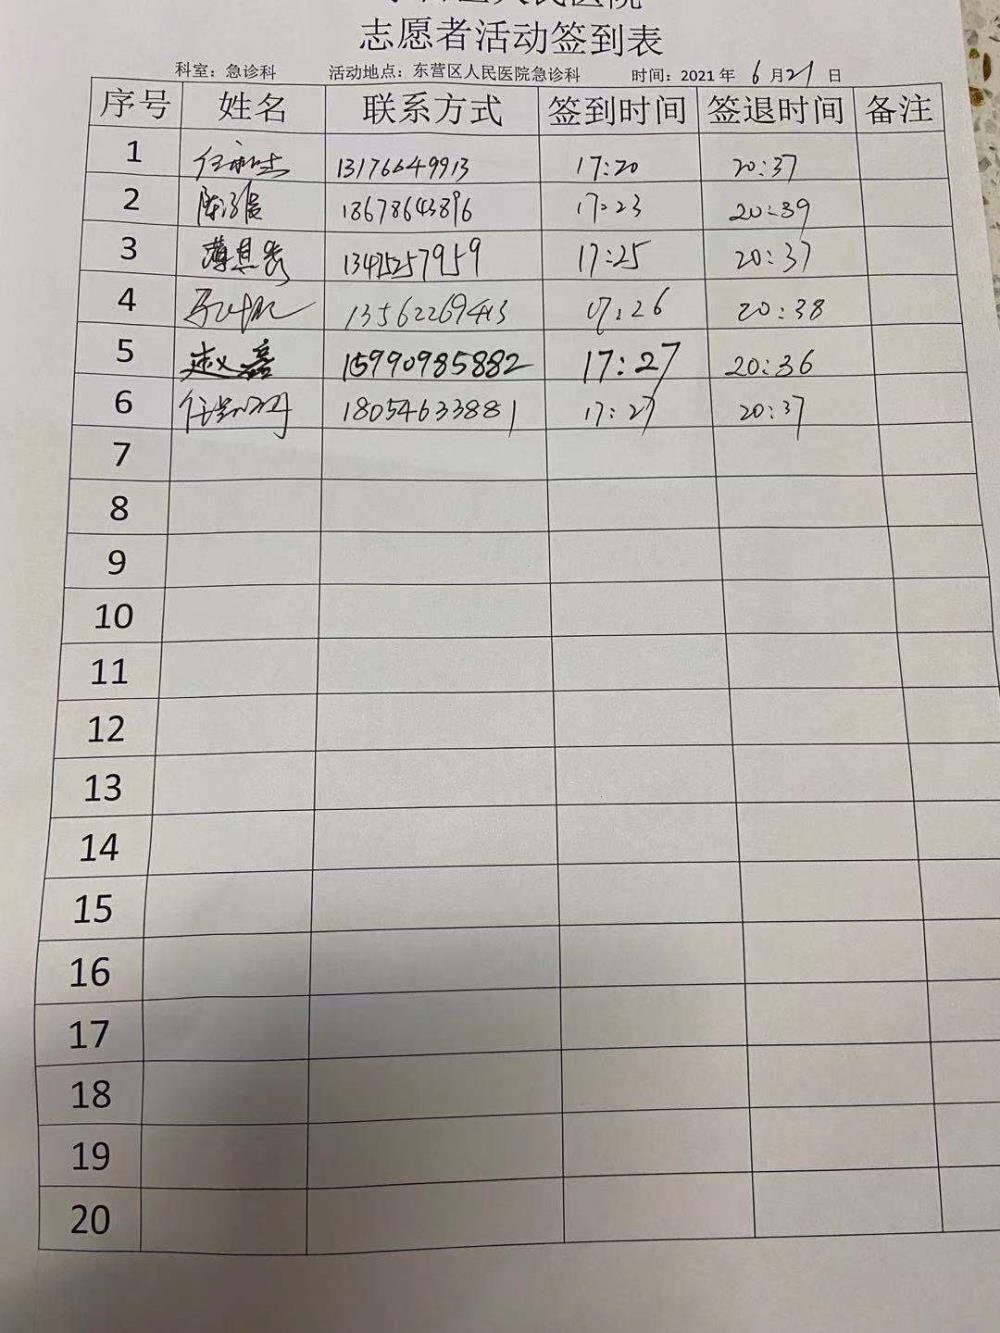 人民医院
志愿者活动签到表
科室：急诊科 活动地点：东营区人民医院急诊科 时间：2021 年 6 月 21 日
序号 姓名 联系方式 签到时间 签退时间 备注
1 13176649913 17:20 20:37
2 18678643896 17:23 20:39
3 13475257959 17:25 20:37
4 13562269413 17:26 20:38
5 赵义嘉 15990985882 17:27 20:36
6 18054633881 17:27 20:37
7
8
9
10
11
12
13
14
15
16
17
18
19
20